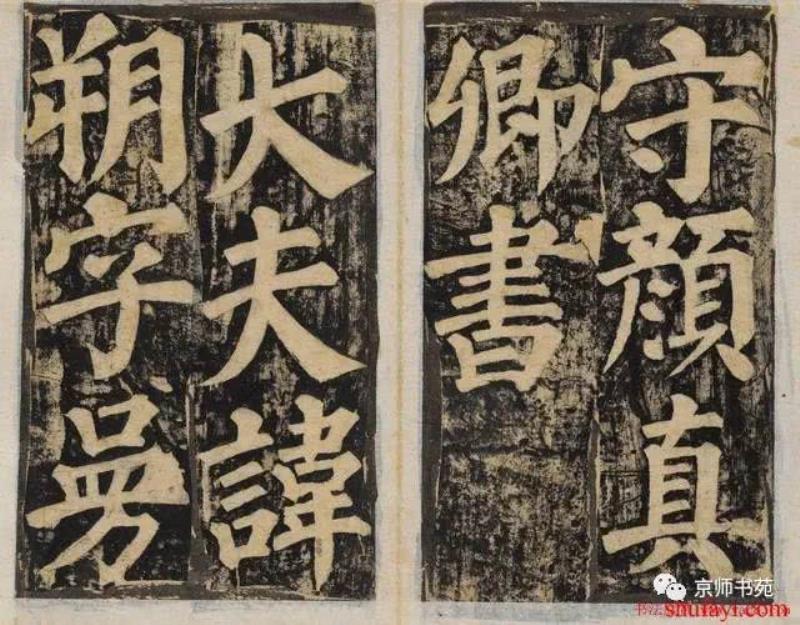 守顏真
卿書
大夫諱
朔字曼
京师书苑
shufayi.com